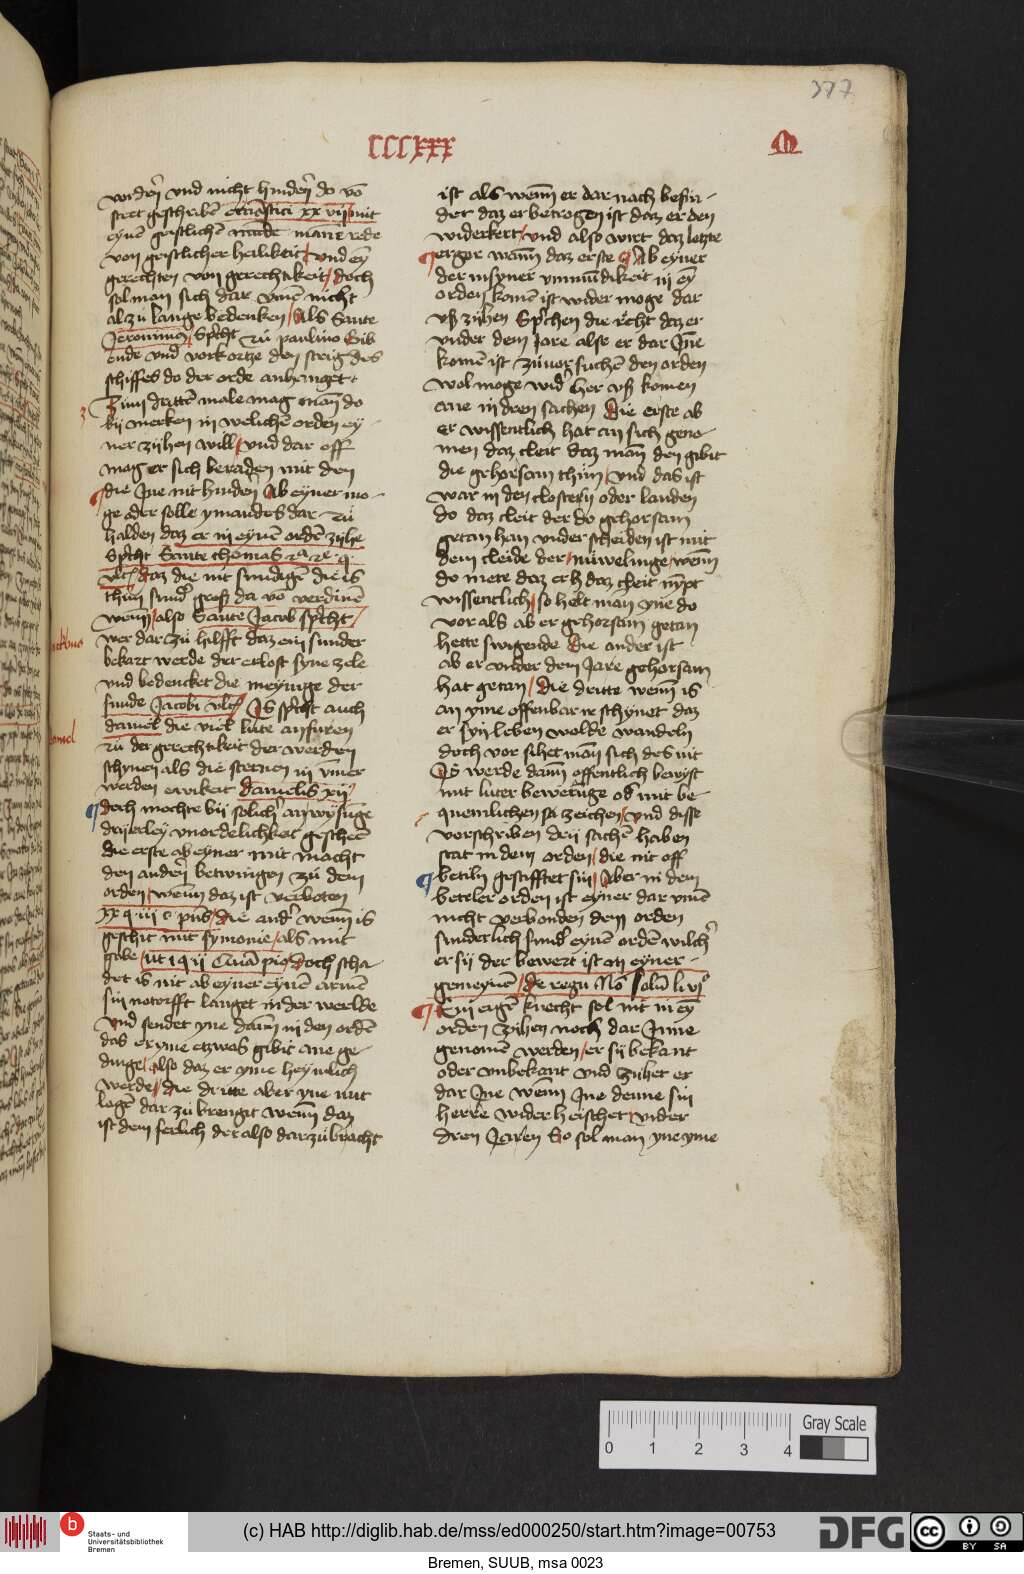 377
CCCXXX
M
vordeñ und nicht hindeñ do vō
stet geschribē ecclīastici xx vij mit
eynē geistlichē māne rede
von geistlicher heilikeit / und eȳ
gerechten von gerechtikeit / doch
sol man sich dar vmē nicht
al zü lange bedenken / Als Sante
Jeronimus Spͥcht zü paulino Gib
ende vnd vorkortze den steig des
schiffes do der orde anhanget
3 Zum drittē male mag man do
bij merken in welichē orden ey
ner zijhen will / vnd dar off
mag er sich beraden mit den
die Jne nit hindeñ Ab eyner mo
ge oder solle ymandes dar zü
halden daz er in eynē ordē zijhe
Spͥcht Sante thomas 2ª 2e q
vltͥ daz die nit sundigē die is
thün sundͥ groß da vō verdinē
wenn / also Sante Jacob spͥcht /
wer dar zü hilfft daz ein sunder
bekart werde der erlost syne zele
und bedencket die meynige der
sunde Jacobi vltͥ Is spͥcht auch
daniel die viel lute anfuren
zü der gerechtikeit der werden
schynen als die sternen in ymer
werden ewikeit danielis xij
doch mochte bij solichͥ anwysūge
drijerley vnordelichkeit gescheē
die erste ab eyner mit macht
den andeñ betwingen zü dem
orden / wenn daz ist verboten
xx q iii c pñs / die andͥ wenn is
geschit mit symonie / als mit
gobe / ut i q ii Quā pio Doch scha
det is nit ab eyner eynē armē
sin notorfft langet in der werlde
vnd sendet yne dann in den ordē
das er yme etzwas gibit ane ge
dinge / also daz er yme heymlich
werde / die dritte aber yne mit
logē dar zü brengit wenn daz
ist dem ferlich der also dar zü bracht
ist als wenn er dar nach befin
det daz er betrogen ist daz er den
widerkert / vnd also wirt daz letzte
erger wann daz erste Ab eyner
der in syner vnmūdikeit in eȳ
orden komē ist wider moge dar
vß zijhen Sprͥchen die recht daz er
vnder dem Jore alse er dar Jne
komē ist zü vor suchē den orden
wol moge widͥ her vß komen
ane in dren sachen Die erste ab
er wissentlich hat an sich geno
men daz cleit daz man den gibit
die gehorsam thün / vnd das ist
war in den clostern oder landen
do daz cleit der do gehorsam
getan han vnder scheiden ist mit
dem cleide der / nüwelinge / wenn
do mete daz er daz cleit nȳpt
wissentlich / so helt man yne do
vor als ab er gehorsam getan
hette swigende Die ander ist
ab er vnder dem Jare gehorsam
hat getan / Die dritte wenn is
an yme offenbar ir schynet daz
er syn leben wolde wandeln
doch vor sihet man sich des nit
Is werde dann offentlich bewyst
mit luter bewerūge odͥ mit be
quemlichen zeichen / vnd disse
vorschriben drij sachē haben
stat in dem orden / die nit off
betiln gestifftet sin / Aber in dem
beteler orden ist eyner dar vmē
nicht verbonden dem orden
sunderlich sundͥ eynē ordē wilchͥ
er sij der bewert ist in eyner
gemeynē / de regu No solū li vjͦ
Ein eigē knecht sol nit in eȳ
orden zijhen noch dar Jnne
genomē werden / er sij bekant
oder vnbekant vnd zuhet er
dar Jne wenn Jne denne sin
herre wider heischet vnder
dren Jaren So sol man yne yme
daniel
Gray Scale
0 1 2 3 4
b
Staats- und
Universitätsbibliothek
Bremen
(c) HAB http://diglib.hab.de/mss/ed000250/start.htm?image=00753
DFG
cc
BY SA
Bremen, SUUB, msa 0023